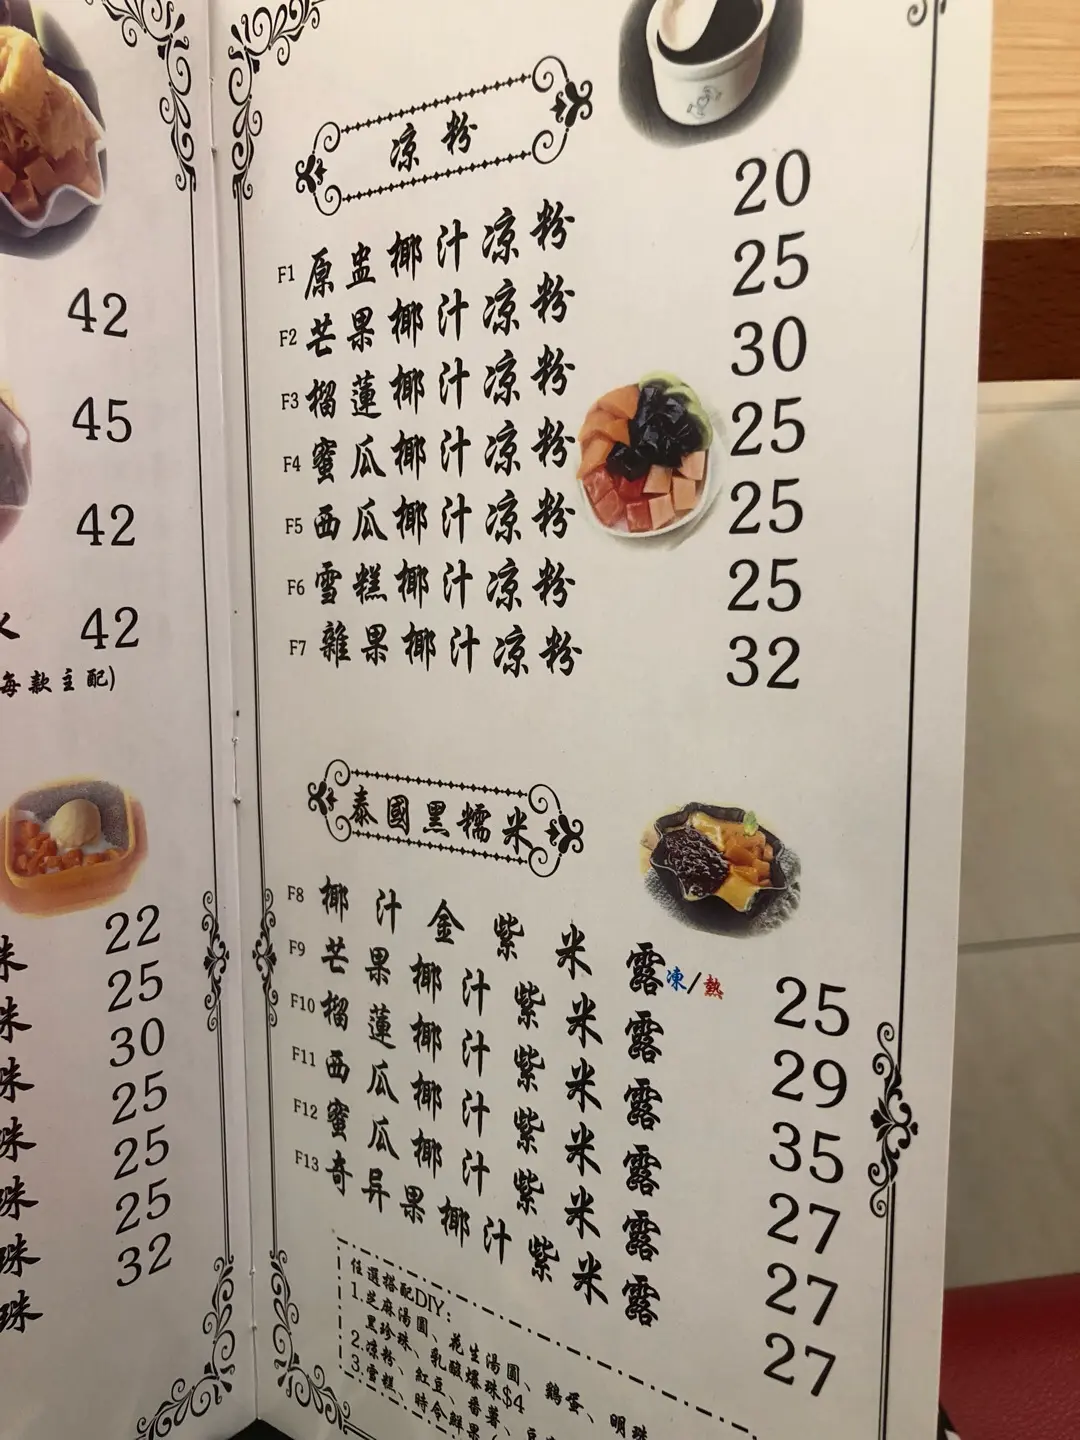 42
45
42
42
每款主配)
22
25
30
25
25
25
32
珠
珠
珠
珠
珠
珠
珠
凉粉
F1 原盅椰汁凉粉 20
F2 芒果椰汁凉粉 25
F3 榴蓮椰汁凉粉 30
F4 蜜瓜椰汁凉粉 25
F5 西瓜椰汁凉粉 25
F6 雪糕椰汁凉粉 25
F7 雜果椰汁凉粉 32
泰國黑糯米
F8 椰汁金紫米露 凍/熱 25
F9 芒果椰汁紫米露 29
F10 榴蓮椰汁紫米露 35
F11 西瓜椰汁紫米露 27
F12 蜜瓜椰汁紫米露 27
F13 奇异果椰汁紫米露 27
任選搭配DIY:
1.芝麻湯圓、花生湯圓、鷄蛋、明珠
黑珍珠、乳酸爆珠$4
2.凉粉、紅豆、番薯、豆
3.雪糕、時令鮮果(